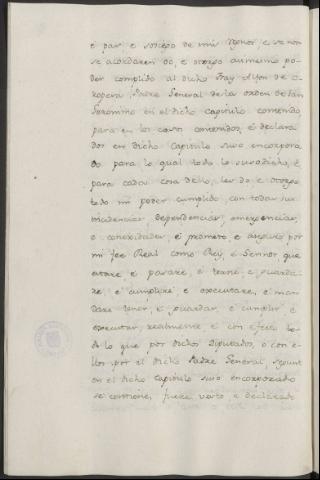 é paz, e sosiego de mis Regnos, e se non
se acordaren do, e otorgo aumesmo po-
der complido al dicho Fray Alfon de O-
ropera, Padre General de la orden de San
Geronimo en el dicho capitulo contenido,
para en los casos contenidos, é declara-
dos en dicho Capitulo suso encorpora-
do para lo qual todo lo susodicho, é
para cada cosa dello, les do e otorgo
todo mi poder cumplido con todas sus
incidencias, dependencias, emergencias,
e conexidades, é prometo, e aseguro por
mi fee Real como Rey, é Sennor que
estare é pasaré, é terné é guarda-
ré, é cumpliré é executare, é man-
dare tener, é guardar, é cumplir é
executar, realmente é con efecto to-
do lo que por dichos Diputados, o con e-
llos por el dicho Padre General, segunt
en el dicho capitulo suso encorporado
se contiene, fuere visto, e declarado